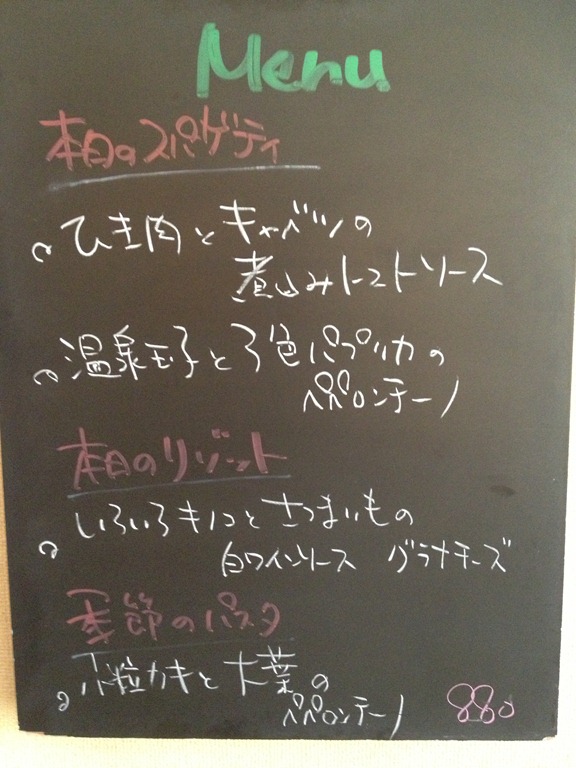 Menu
本日のスパゲティ
ひき肉とキャベツの
煮込みトマトソース
温泉玉子と3色パプリカの
ペペロンチーノ
本日のリゾット
いろいろキノコとさつまいもの
白ワインソース グラナチーズ
季節のパスタ
小粒カキと大葉の
ペペロンチーノ
880